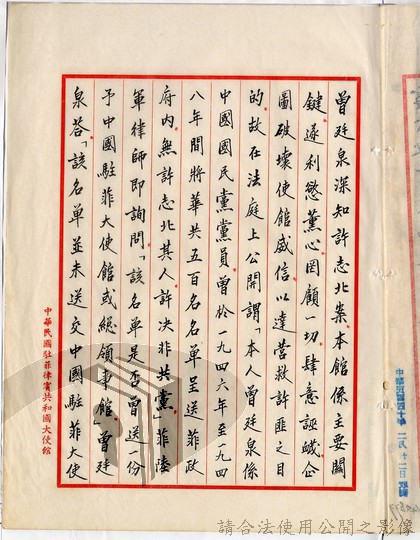 曾廷泉深知許志北案本館係主要關
鍵遂利慾薰心罔顧一切肆意誣衊企
圖破壞使館威信以達營救許匪之目
的故在法庭上公開謂「本人曾廷泉係
中國國民黨黨員曾於一九四六年至一九四
八年間將華共五百名名單呈送菲政
府內無許志北其人許決非共黨」菲陸
軍律師即詢問「該名單是否曾送一份
予中國駐菲大使館或總領事館」曾廷
泉答「該名單並未送交中國駐菲大使
中華民國駐菲律賓共和國大使館
請合法使用公開之影像